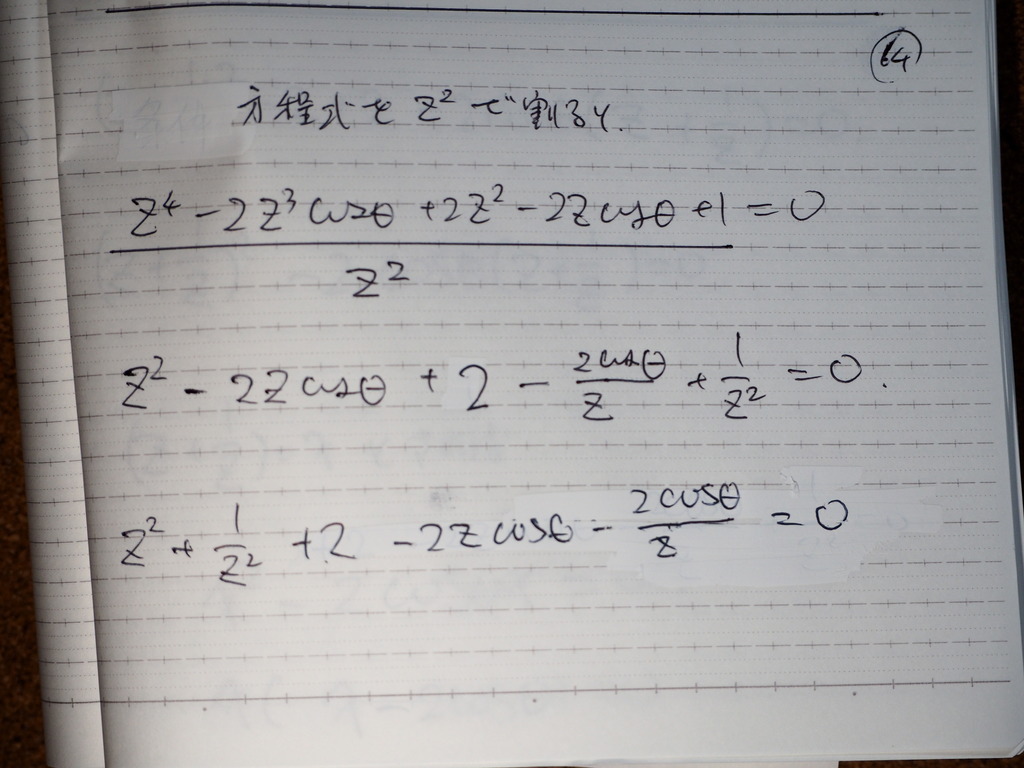 64
方程式を z² で割ると.
(z⁴ - 2z³cosθ + 2z² - 2z cosθ + 1)/z² = 0
z² - 2z cosθ + 2 - 2cosθ/z + 1/z² = 0.
z² + 1/z² + 2 - 2z cosθ - 2cosθ/z = 0